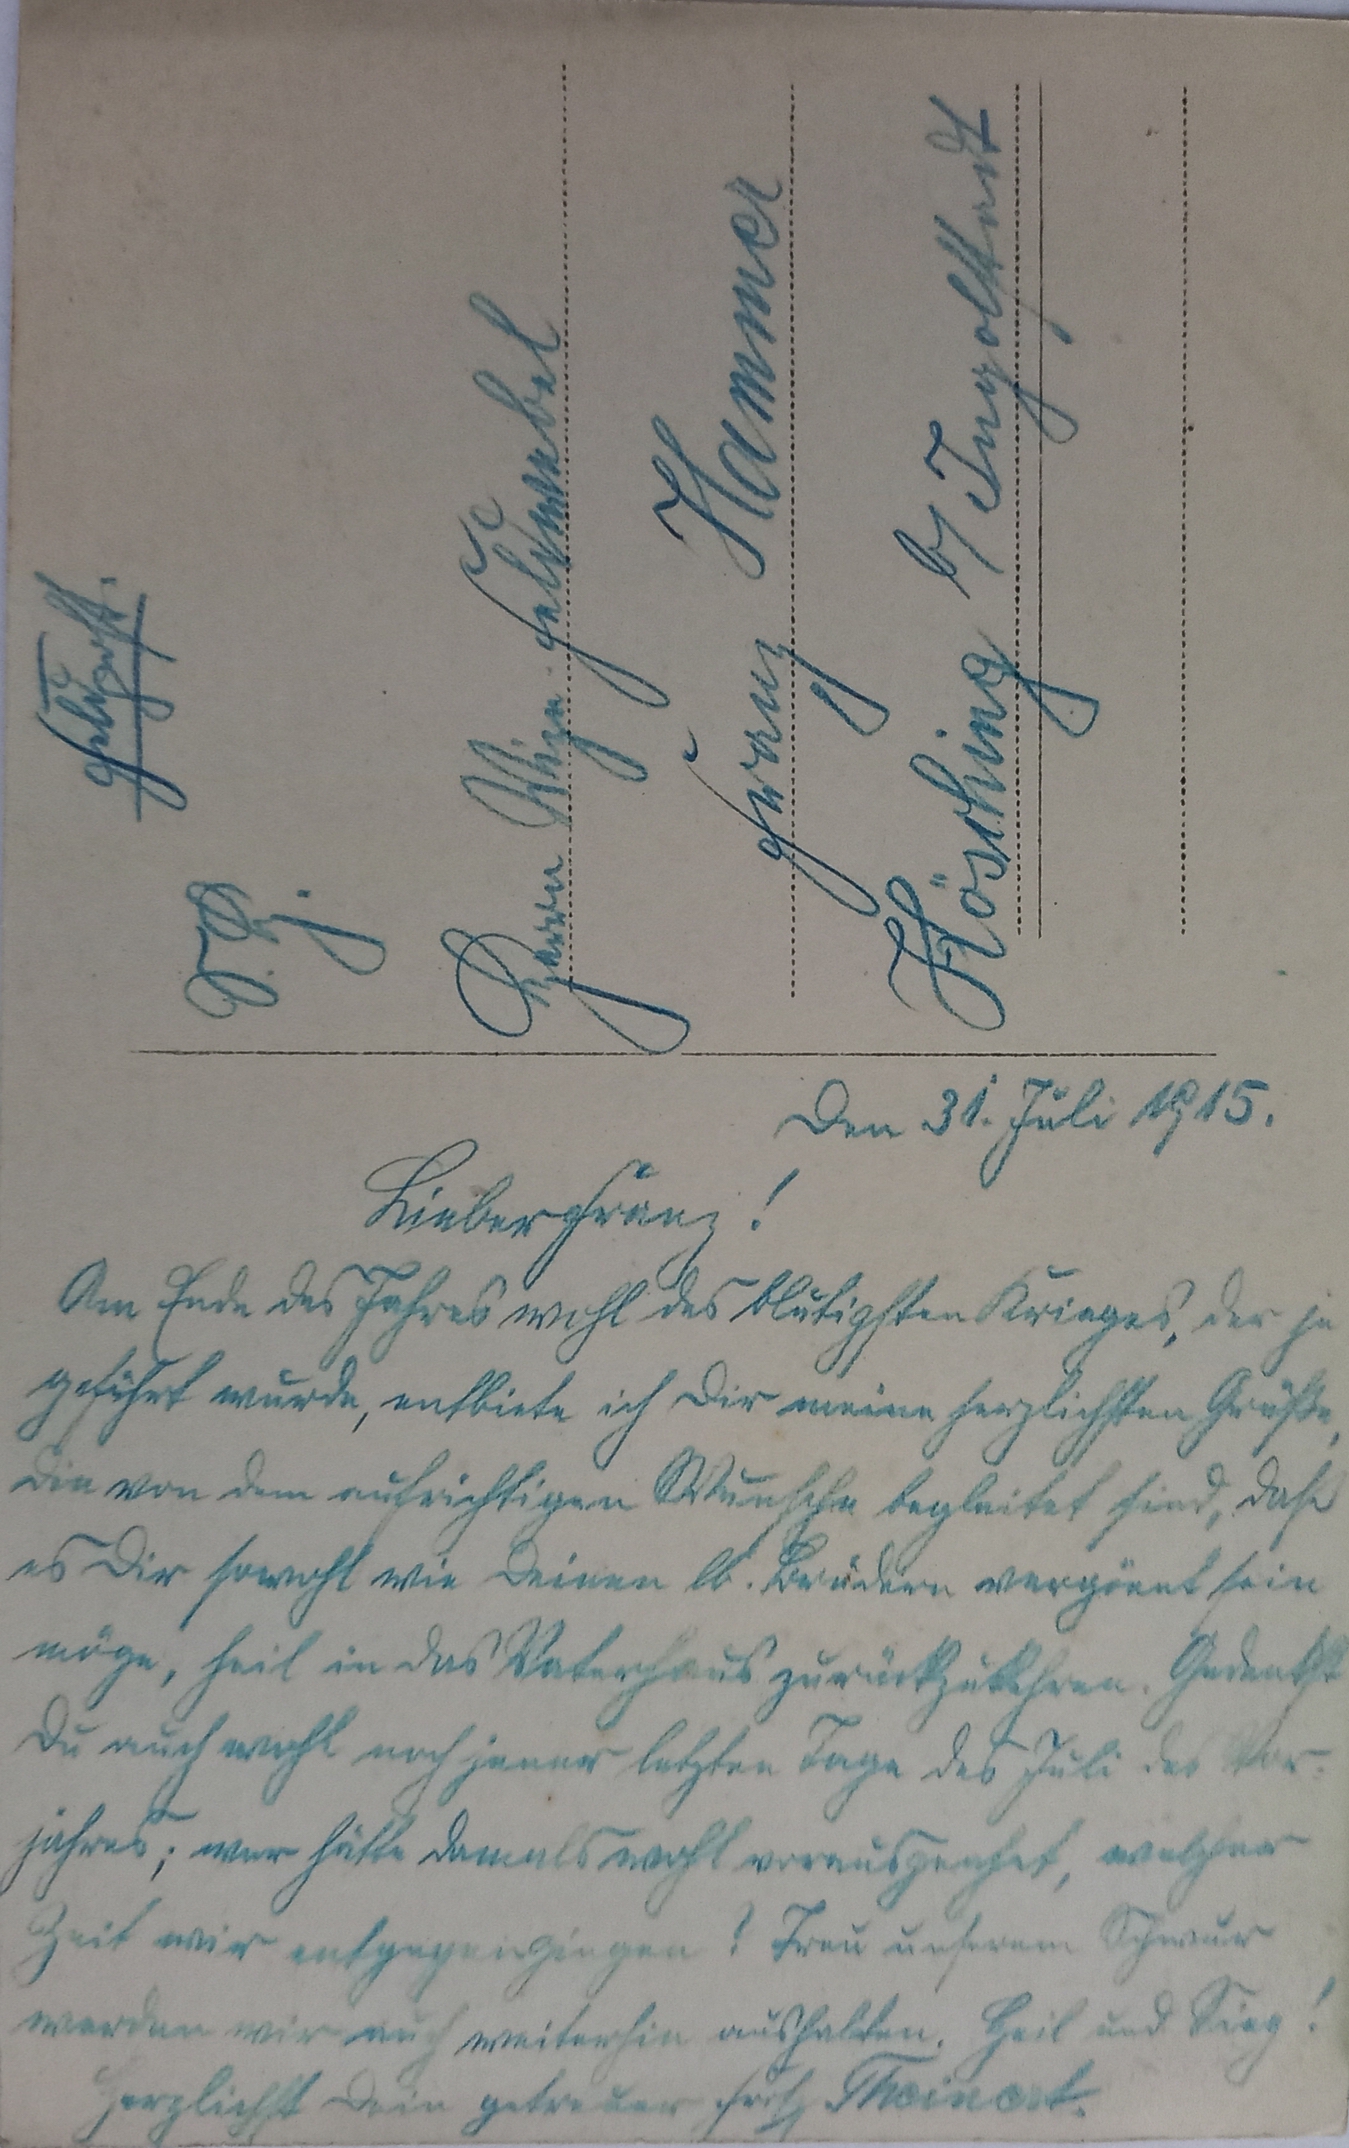 Feldpost.
S. Hj.
Herrn Vize-Feldwebel
Franz Hammer
Kösching b/ Ingolstadt
Den 31. Juli 1915.
Lieber Franz!
Am Ende des Jahres wohl des blutigsten Krieges, der je
geführt wurde, entbiete ich Dir meine herzlichsten Grüße,
die von dem aufrichtigen Wunsche begleitet sind, daß
es Dir sowohl wie Deinen lb. Brüdern vergönt sein
möge, heil in das Vaterhaus zurückzukehren. Gedenkst
Du auch wohl noch jener letzten Tage des Juli des Vor-
jahres; wer hätte damals wohl vorausgeahnt, welcher
Zeit wir entgegengingen? Treu unserem Schwur
werden wir auch weiterhin aushalten. Heil und Sieg!
Herzlichst Dein getreuer Fritz